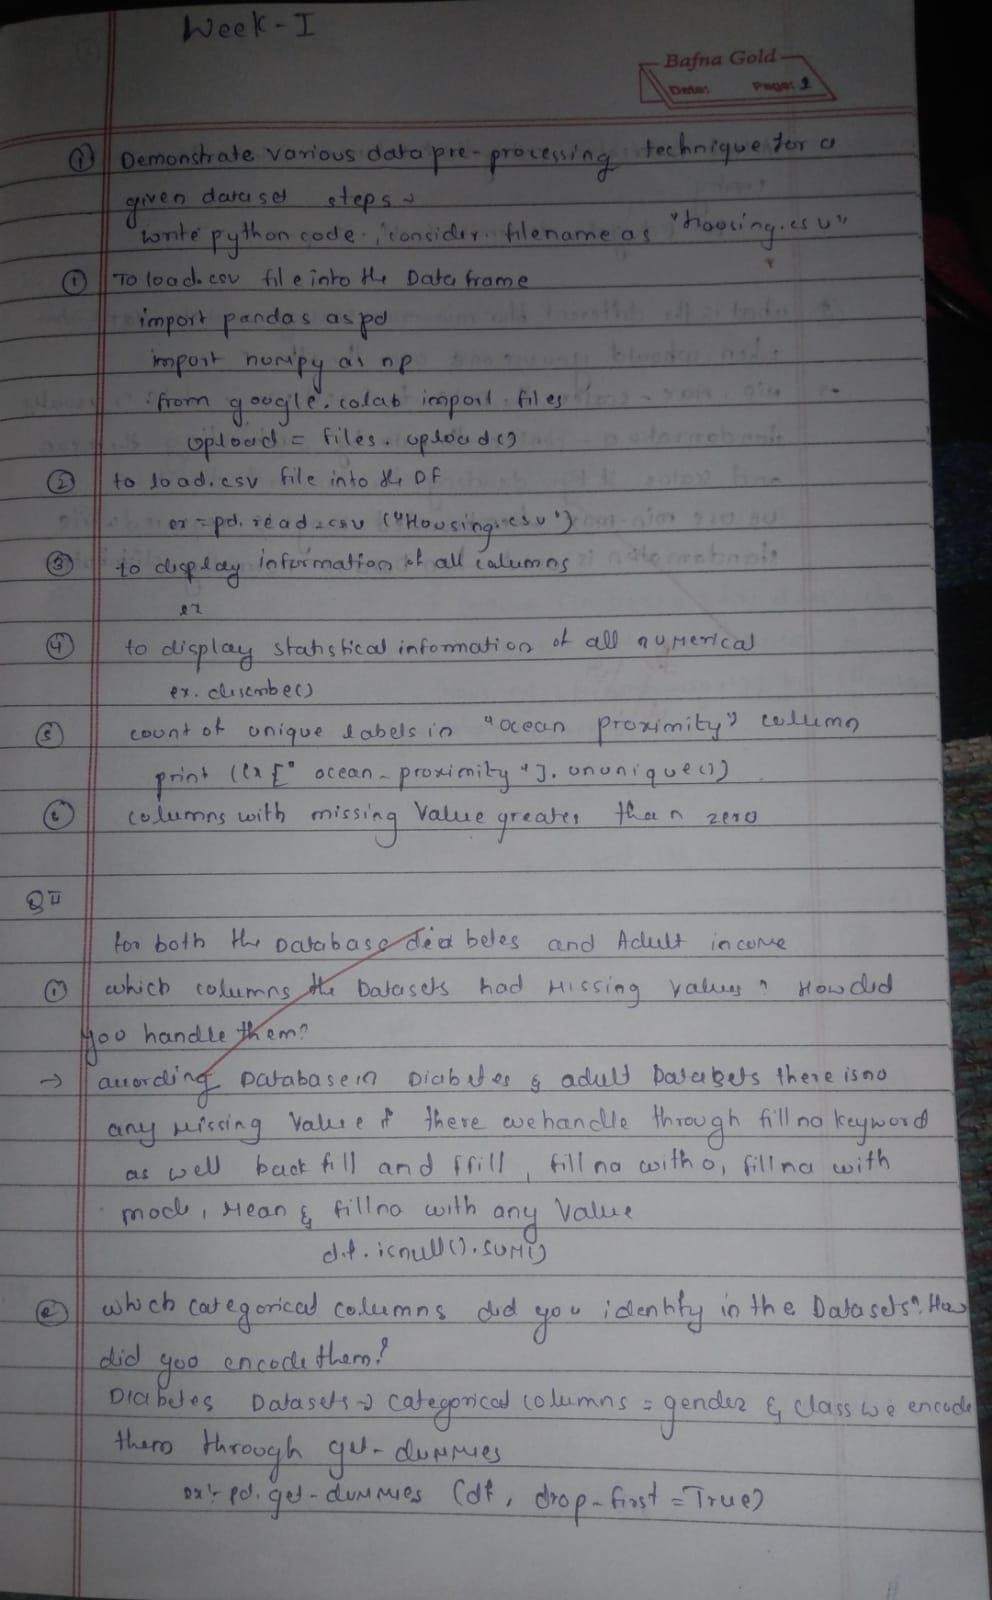 Week-I
Bafna Gold
Date: Page: 1
① Demonstrate various data pre-processing technique for a
given dataset steps →
write python code, consider filename as "Hoosing.csv"
① To load.csv file into the Data frame
import pandas as pd
import numpy as np
from google.colab import files
upload = files.upload()
② to load.csv file into the DF
ex = pd.read_csv ("Housing.csv")
③ to display information of all calumns
ex
④ to display statistical information of all numerical
ex. describe()
⑤ count of unique labels in "ocean proximity" column
print ((ex[" ocean_proximity"].ununique())
⑥ columns with missing Value greater than zero
Q II
for both the Database diabetes and Adult income
① which columns the Datasets had Missing values? How did
you handle them?
→ auording Database in Diabetes & adult Datasets there is no
any Missing Value if there we handle through fill na keyword
as well back fill and ffill, fill na with 0, fillna with
mod, Mean & fillna with any Value
d.f. isnull().SUM()
② which categorical columns did you identify in the Datasets? How
did you encode them?
Diabetes Datasets → Categorical columns = gender & Class we encode
them through get-dummies
ex:- pd.get-dummies (df, drop-first = True)